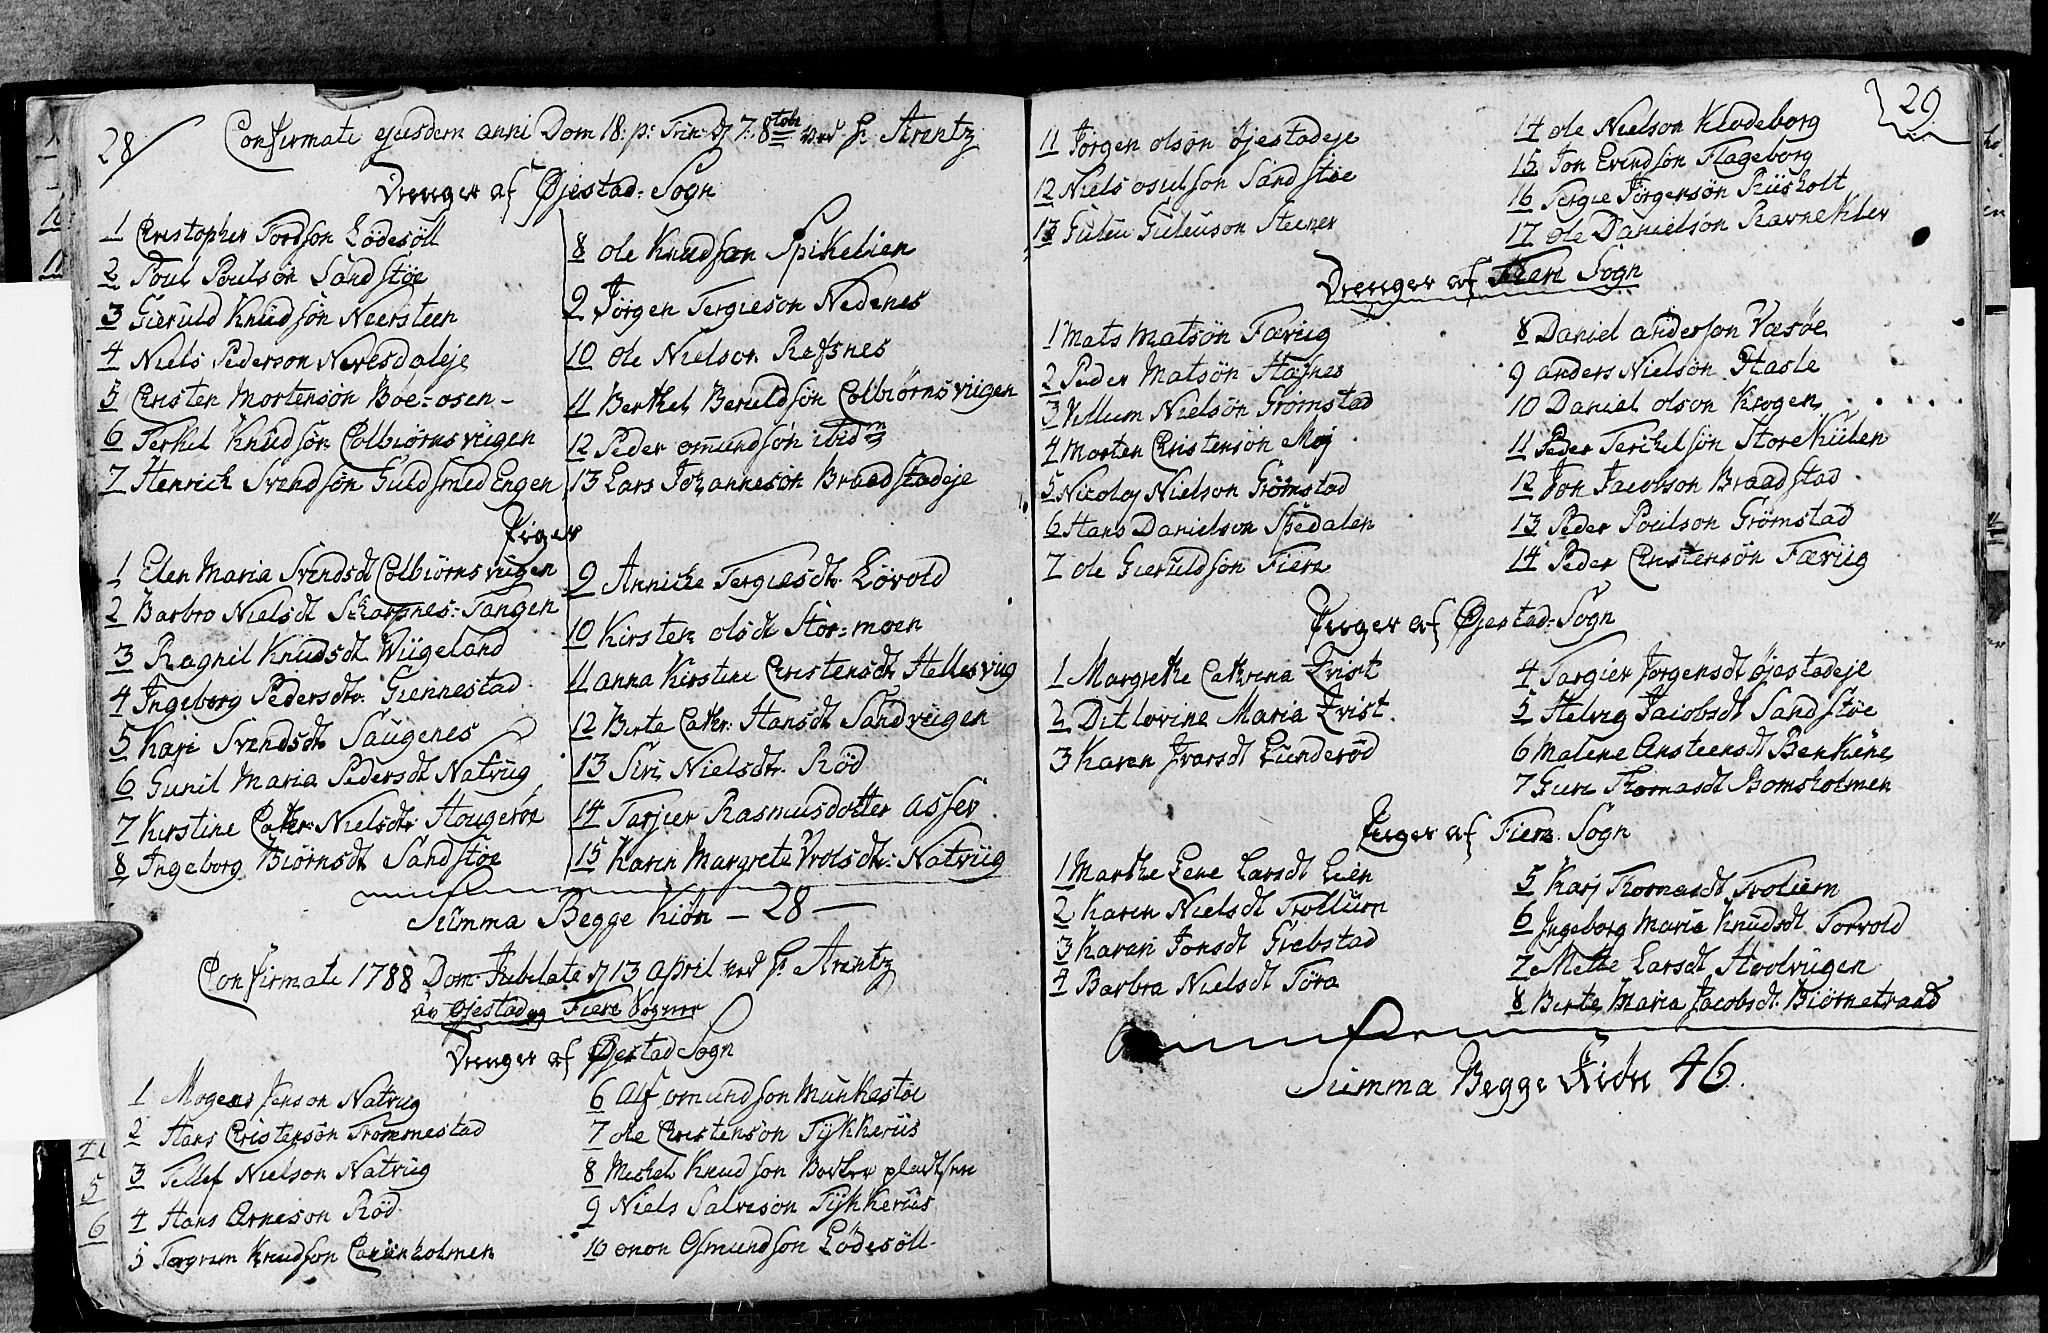 28
Confirmate ejusdem anni Dom 18: p: Trin: d 7: 8tobr ved Hr Arentz
Drenger af Øjestad-Sogn
1 Cristopher Tordsøn Lödesöll
2 Poul Poulsøn Sandstøe
3 Gieruld Knudsøn Neersteen
4 Niels Pederson Nevesdaleje
5 Cristen Mortensøn Böe-osen-
6 Terkel Knudsøn Colbiörnsviigen
7 Henrich Svendsøn Guldsmed Engen
8 Ole Knudsøn Spikelien
9 Jörgen Tergieson Nedenes
10 Ole Nielson Refsnes
11 Berthel Beruldsøn Colbiörnsviigen
12 Peder omundsøn ibidm
13 Lars Johannesøn Braadstadeje
Piger
1 Elen Maria Svendsdt Colbiörnsviigen
2 Barbro Nielsdt Skarpnes-Tangen
3 Ragnil Knudsdt Wiigeland
4 Ingeborg Pedersdtr Giennestad
5 Kari Svendsdt Saugenes
6 Gunil Maria Pedersdt Natviig
7 Kirstine Cathr: Nielsdtr Hougeröe
8 Ingeborg Biörnsdt Sandstøe
9 Anniche Tergiesdtr Lövold
10 Kirsten olsdt Stor-moen
11 Anna Kirstine Cristensdt Hellesviig
12 Berte Cathr: Hansdt Sandviigen
13 Siri Nielsdtr. Röd
14 Tarjier Rasmusdotter Asser
15 Karen Margrete Vrolsdtr: Natviig
Summa Begge Kiön - 28 -
Confirmate 1788 Dom. Jubilate d 13 April ved Hr Arentz
av Øjestad og Fiere Sogner
Drenger af Øjestad Sogn
1 Mogens Jenson Natvig
2 Hans Cristensøn Trommestad
3 Tellef Nielson Natviig
4 Hans Arneson Röd
5 Torgrim Knudson Caninholmen
6 Alf omundson Munkestøe
7 Ole Cristensøn Tykkeriis
8 Michel Knudson Barkepladtsen
9 Niels Salveson Tykkeriis
10 Onon Osmundson Lödesöll
29
11 Jörgen olsøn Øjestadeje
12 Niels osulson Sandstøe
13 Guleu Guleuson Steener
14 Ole Nielson Klodeborg
15 Jon Evendsøn Flageborg
16 Tergie Jörgensøn Riisholt
17 Ole Danielsøn RavneKlev
Drenger af Fiere Sogn
1 Mats Matsøn Færviig
2 Peder Matsøn Hasnes
3 Villum Nielsøn Grömstad
4 Morten Cristensøn Moj
5 Nicolaj Nielson Grömstad
6 Hans Danielson Spedalen
7 Ole Gieruldsøn Fiere
8 Daniel anderson Væsöe
9 anders Nielsøn Hasle
10 Daniel olson Krogen
11 Peder Terkelsøn Store Kiilen
12 Jon Jacobson Braadstad
13 Peder Poulson Grömstad
14 Peder Cristensøn Færviig
Piger af Øjestad-Sogn
1 Margrethe Cathrina Qvist
2 Ditlovine Maria Qvist
3 Karen Ivarsdt Lunderöd
4 Targier Jörgensdt Øjestadeje
5 Helvig Jacobsdt Sandstøe
6 Malene Ansteensdt Benkiene
7 Gure Thomasdt Bomsholmen
Piger af Fiere Sogn
1 Marthe Lene Larsdt Lien
2 Karen Nielsdt Trollum
3 Karen Jonsdt Grebstad
4 Barbra Nielsdt Töra
5 Kari Thomasdt Trolium
6 Ingeborg Maria Knudsdt Torvold
7 Mette Larsdt Hvolviigen
8 Berte Maria Jacobsdt Biörnetraad
Summa Begge Kiön 46.